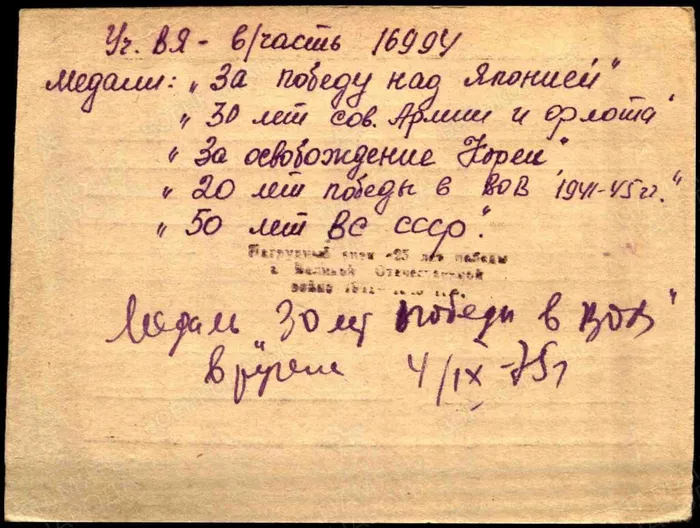 Уч. ВЯ - в/часть 16994
Медали: „За победу над Японией"
„30 лет сов. Армии и флота"
„За освобождение Кореи"
„20 лет победы в ВОВ 1941-45 гг."
„50 лет ВС СССР".
Нагрудный знак «25 лет победы
в Великой Отечественной
войне
Медаль 30 лет победы в ВОВ"
4/IX-75г